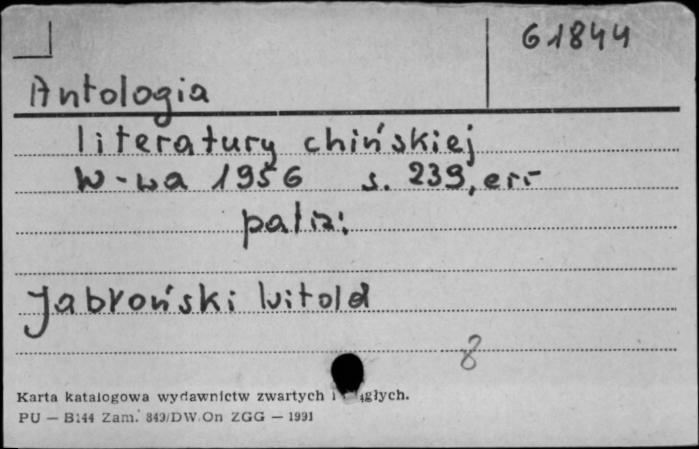 G1844
Antologia
literatury chińskiej
W-wa 1956 s. 239, err
patrz:
Jabłoński Witold
8
Karta katalogowa wydawnictw zwartych i ciągłych.
PU — B144 Zam. 849/DW.On ZGG — 1991